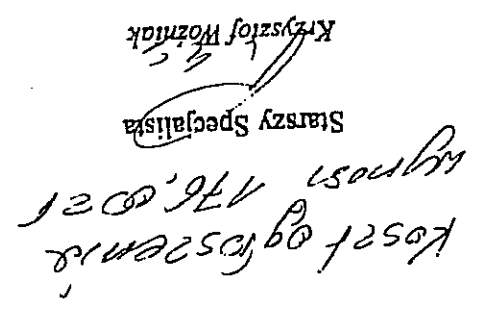 Koszt ogłoszenia
wynosi 176,00 zł
Starszy Specjalista
Krzysztof Woźniak